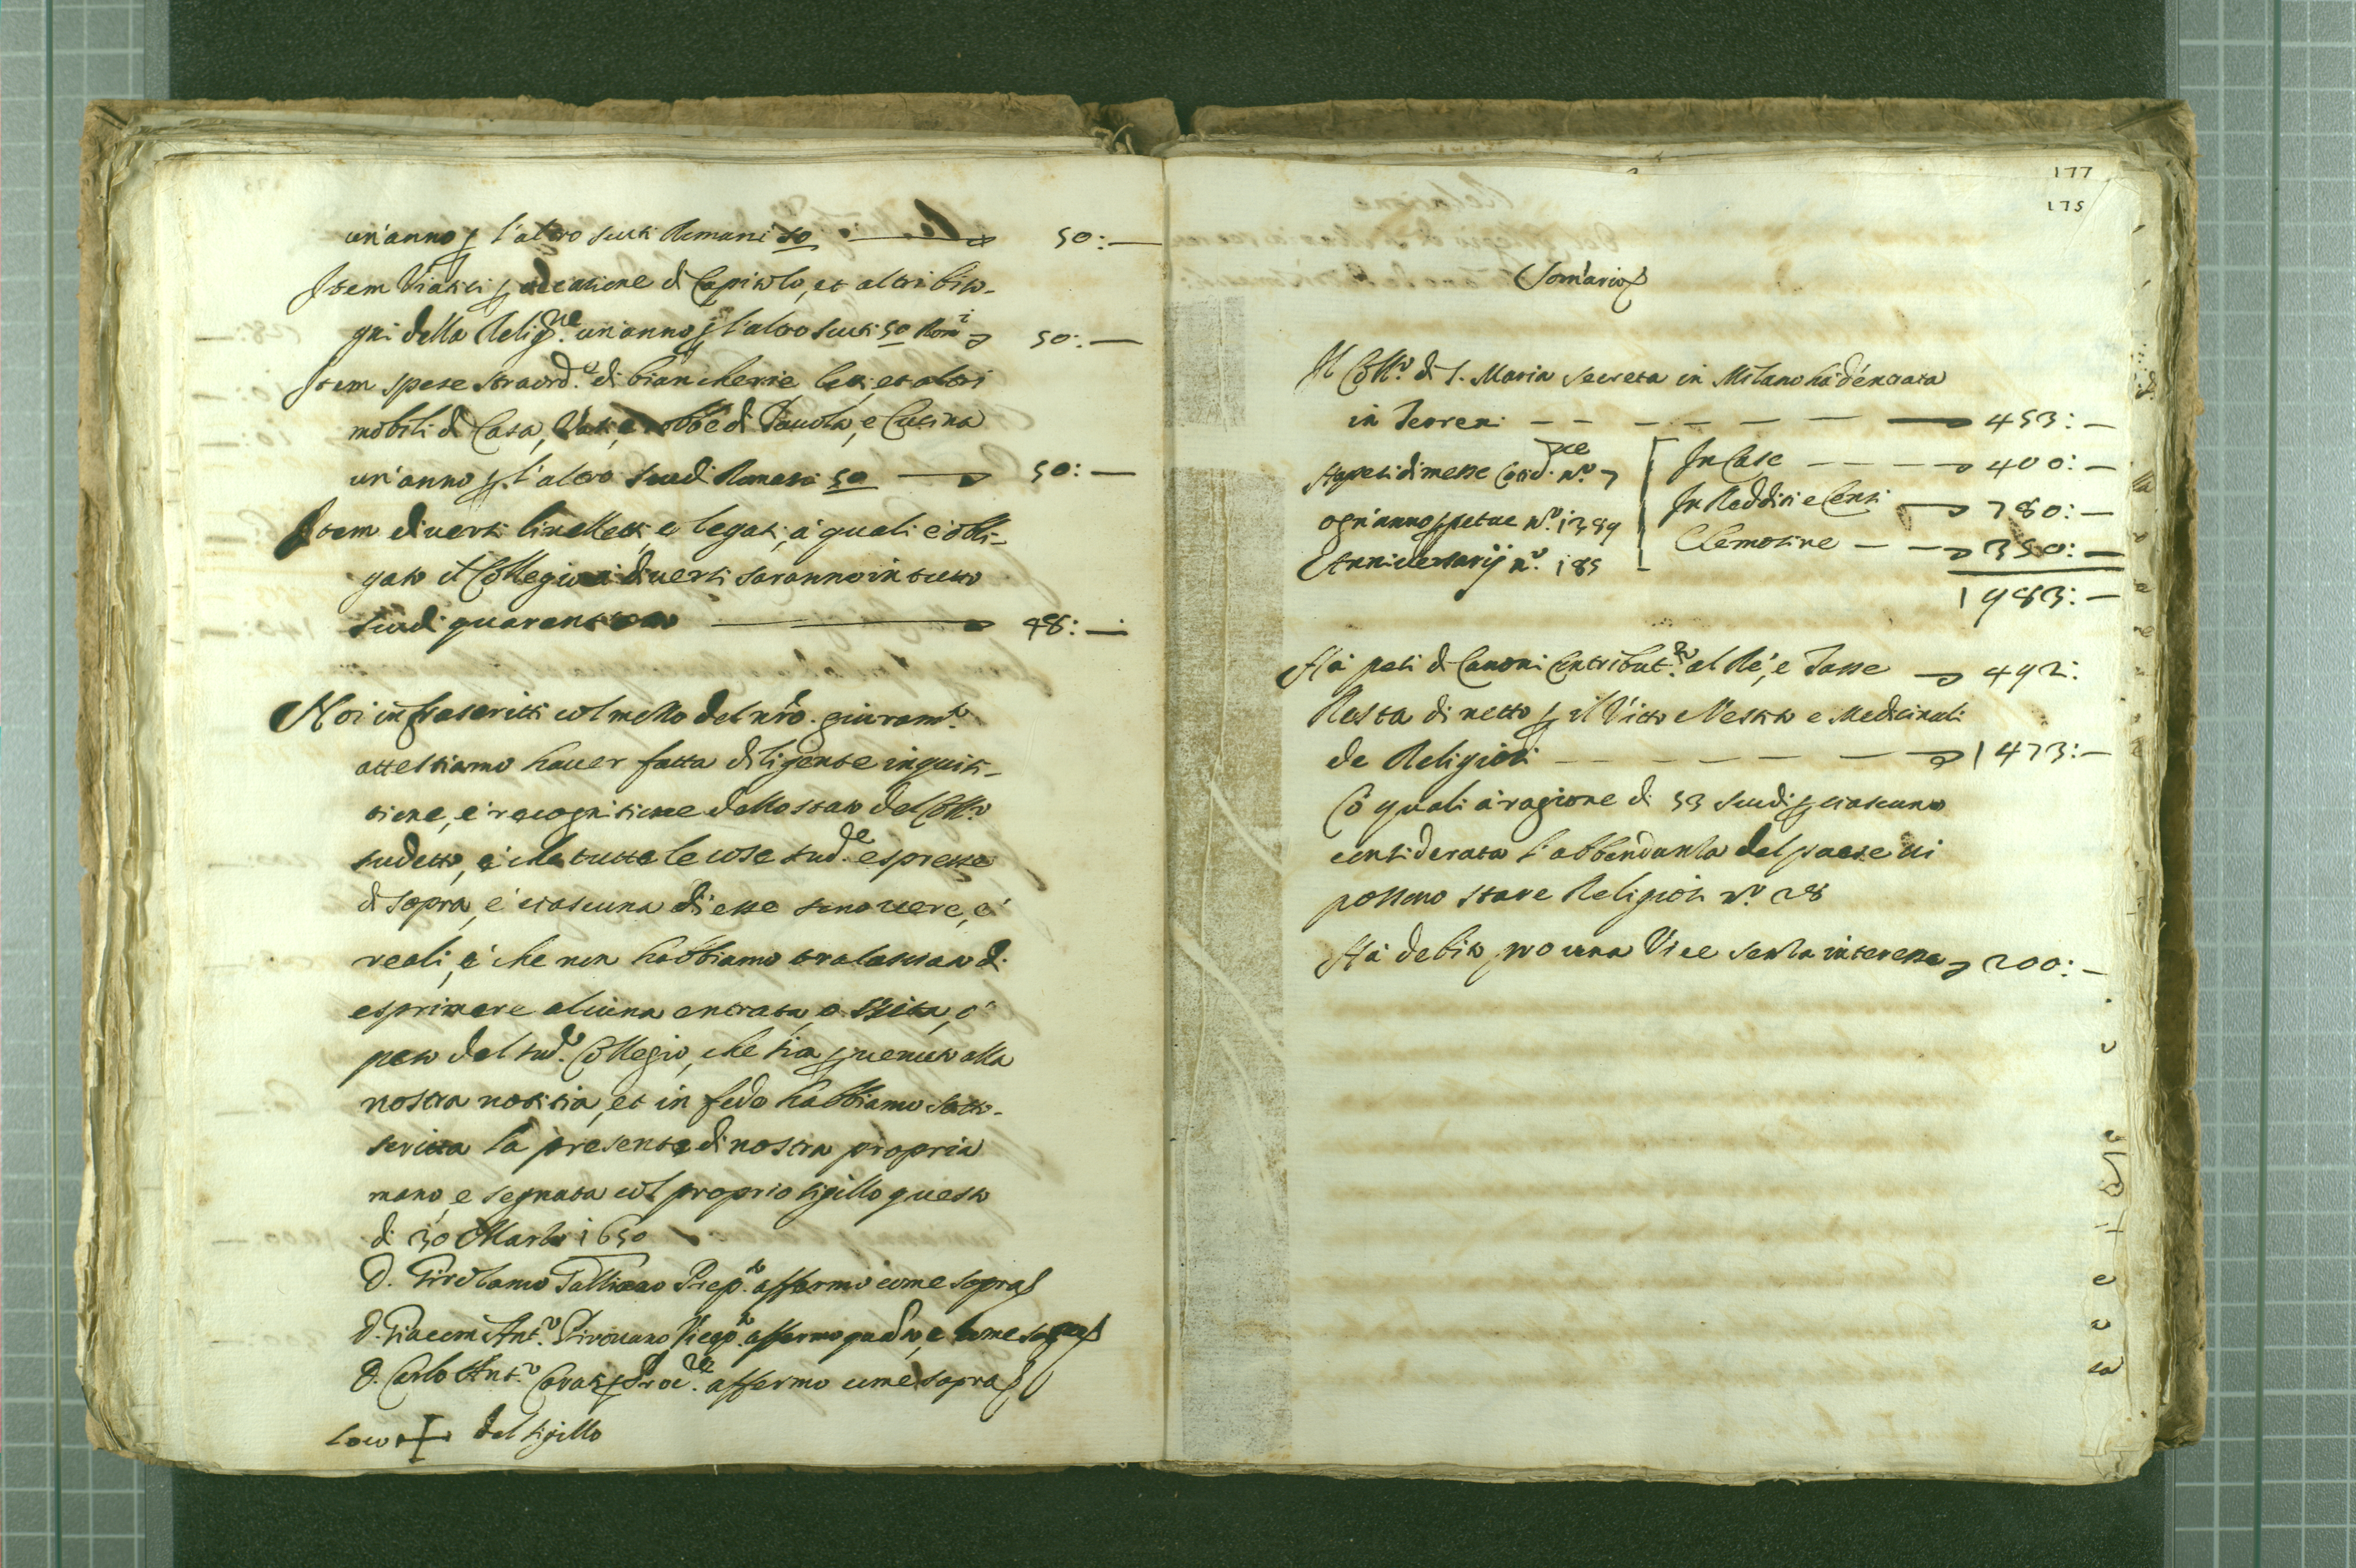 un'anno p l'altro scuti Romani 50 50:—
Item Viatici p occasione di Capitolo, et altri biso-
gni della Relig.ne un'anno p l'altro scuti 50 Rom.i 50:—
Item spese straord.e di biancherie letti, et altri
mobili di Casa, Vasi, e robbe di Tavola, e Cucina
un'anno p l'altro scudi Romani 50 50:—
Item diversi livelletti, e legati, a quali è obli-
gato il Collegio a diversi saranno in tutto
scudi 48:—
Noi infrascritti col mezzo del nro. giuram.to
attestiamo haver fatta diligente inquisi-
tione, e recognitione dello stato del Coll.o
sudetto, e che tutte le cose sud.de espresse
di sopra, e ciascuna di esse sono vere, e
reali, e che non habbiamo tralasciato di
esprimere alcuna entrata, o uscita, o
peso del sud.o Collegio, che sia pvenuto alla
nostra notitia, et in fede habbiamo sotto-
scritta la presente di nostra propria
mano, e segnata col proprio sigillo questo
di 30 Marzo 1650
D. Girolamo Prep.to affermo come sopra
D. Giacom Ant.o Pirovano Vicep.to affermo quanto, e come sopra
D. Carlo Ant.o Proc.re affermo come sopra
Loco + del sigillo
177
175
Som'ario
Il Coll.o di S. Maria Secreta in Milano hà d'entrata
in Terreni — 453:—
Hà pesi di messe Cotid.ne n.o 7 In Case — 400:—
ogn'anno ppetue n.o 1389 In Redditi e Censi 780:—
Anniversarij n.o 185 Elemosine — 350:—
1983:—
Hà pesi di Canoni Contribut.ni al Rè, e Tasse 492:
Resta di netto p il Vitto e Vestito e Medicinali
de Religiosi — 1473:—
Cò quali à ragione di 53 scudi p ciascuno
considerata l'abbondanza del paese vi
possono stare Religiosi n.o 28
Hà debito pro una Vice senza interesse 200:—